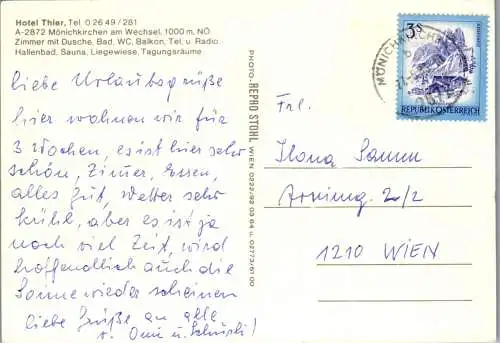 Hotel Thier, Tel. 0 26 49 / 281
A-2872 Mönichkirchen am Wechsel, 1000 m, NÖ
Zimmer mit Dusche, Bad, WC, Balkon, Tel. u. Radio
Hallenbad, Sauna, Liegewiese, Tagungsräume
liebe Urlaubsgrüße
hier wohnen wir für
3 Wochen, es ist hier sehr
schön, Zimer, Essen,
alles gut, Wetter sehr
kühl, aber es ist ja
noch viel Zeit, wird
hoffendlich auch die
Sonne wieder scheinen
liebe Grüße an alle
v. Omi u.
PHOTO- REPRO STOHL WIEN 0222/92 03 64 u. 02773/61 00
3S
REPUBLIK ÖSTERREICH
Frl.
Ilona
2/2
1210 WIEN